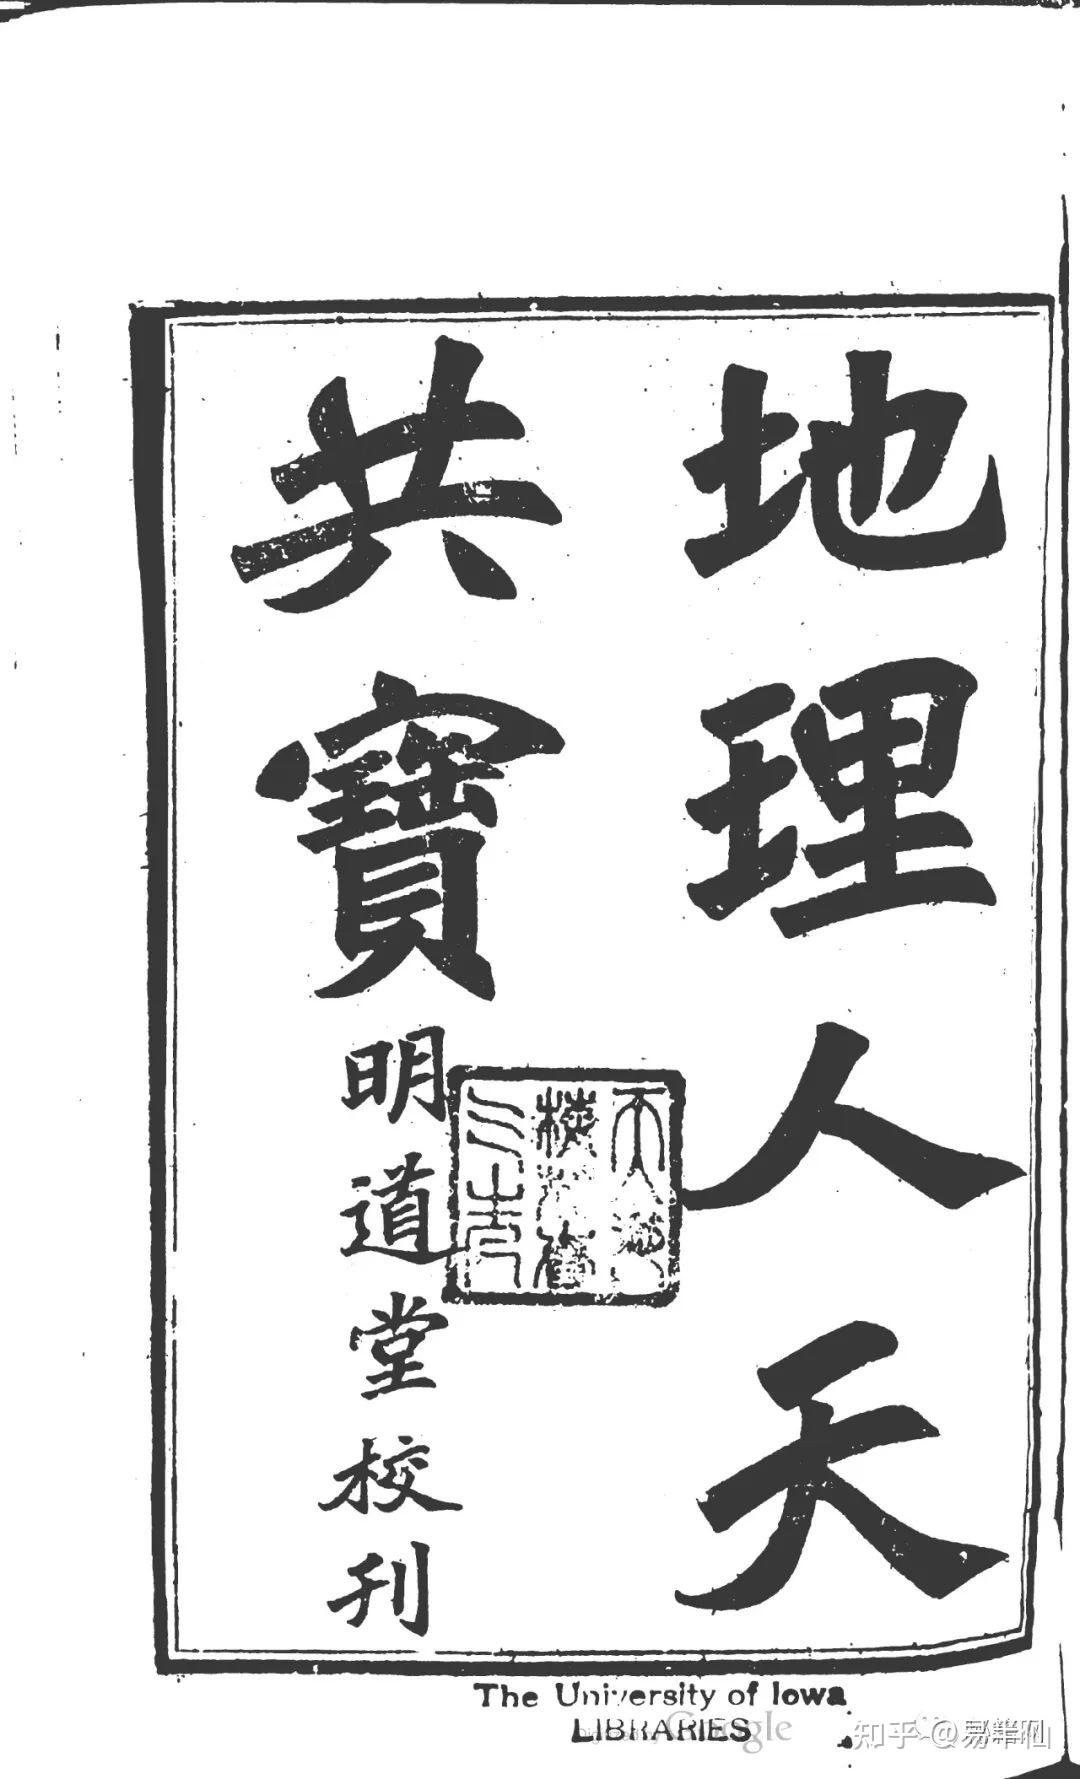 地理人天
共寶
明道堂校刊
The University of Iowa
LIBRARIES
Google
知乎 @易籍网